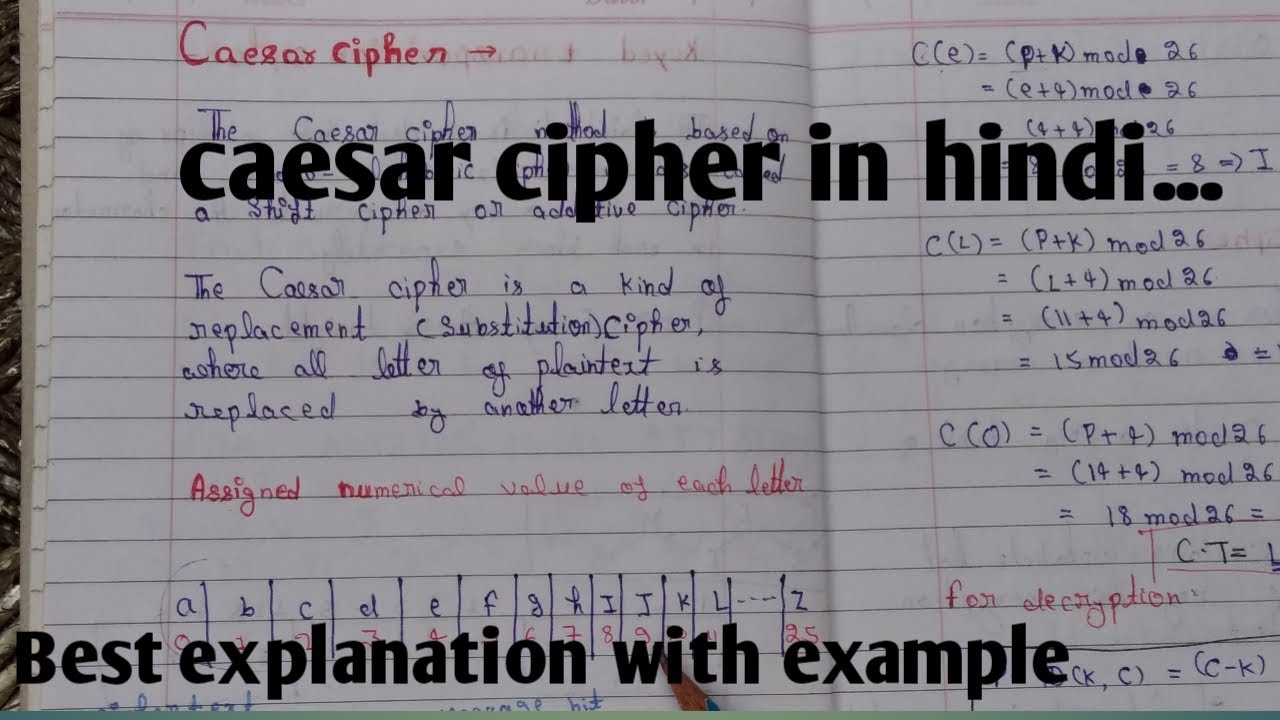 Caesar cipher →
The Caesar cipher method is based on
a shift cipher or additive cipher.
The Caesar cipher is a kind of
replacement (substitution) cipher,
where all letter of plaintext is
replaced by another letter.
Assigned numerical value of each letter
a b c d e f g h I J K L ---- Z
0 2 3 4 6 7 8 9 25
message hit
C(e) = (p+k) mod 26
= (e+4) mod 26
(4+4) mod 26
= 8 => I
C(L) = (P+K) mod 26
= (L+4) mod 26
= (11+4) mod 26
= 15 mod 26 =
C(O) = (P+4) mod 26
= (14+4) mod 26
= 18 mod 26 =
C.T = L
for decryption:
(K, C) = (C-K)
caesar cipher in hindi...
Best explanation with example